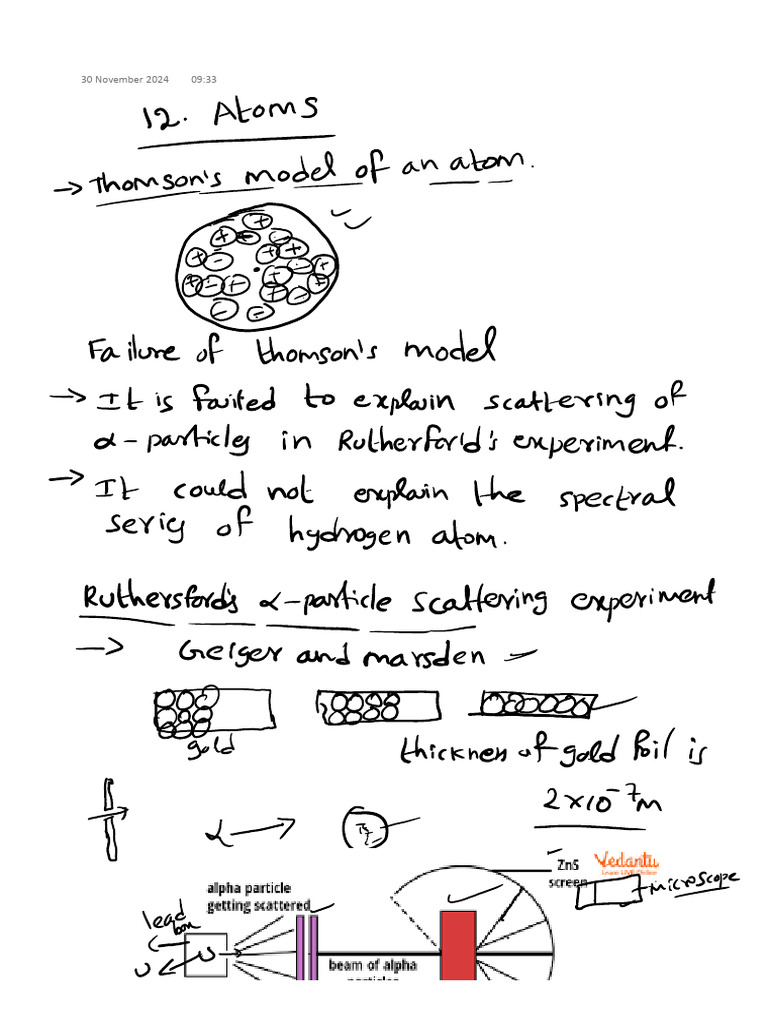 30 November 2024 09:33
12. Atoms
→ Thomson's model of an atom.
Failure of thomson's model
→ It is failed to explain scattering of
α-particles in Rutherford's experiment.
→ It could not explain the spectral
series of hydrogen atom.
Ruthersford's α-particle scattering experiment
→ Geiger and marsden
gold
thicknes of gold foil is
2×10⁻⁷m
α →
ZnS
screen
Vedantu
Learn LIVE Online
microscope
alpha particle
getting scattered
lead
box
beam of alpha
particles